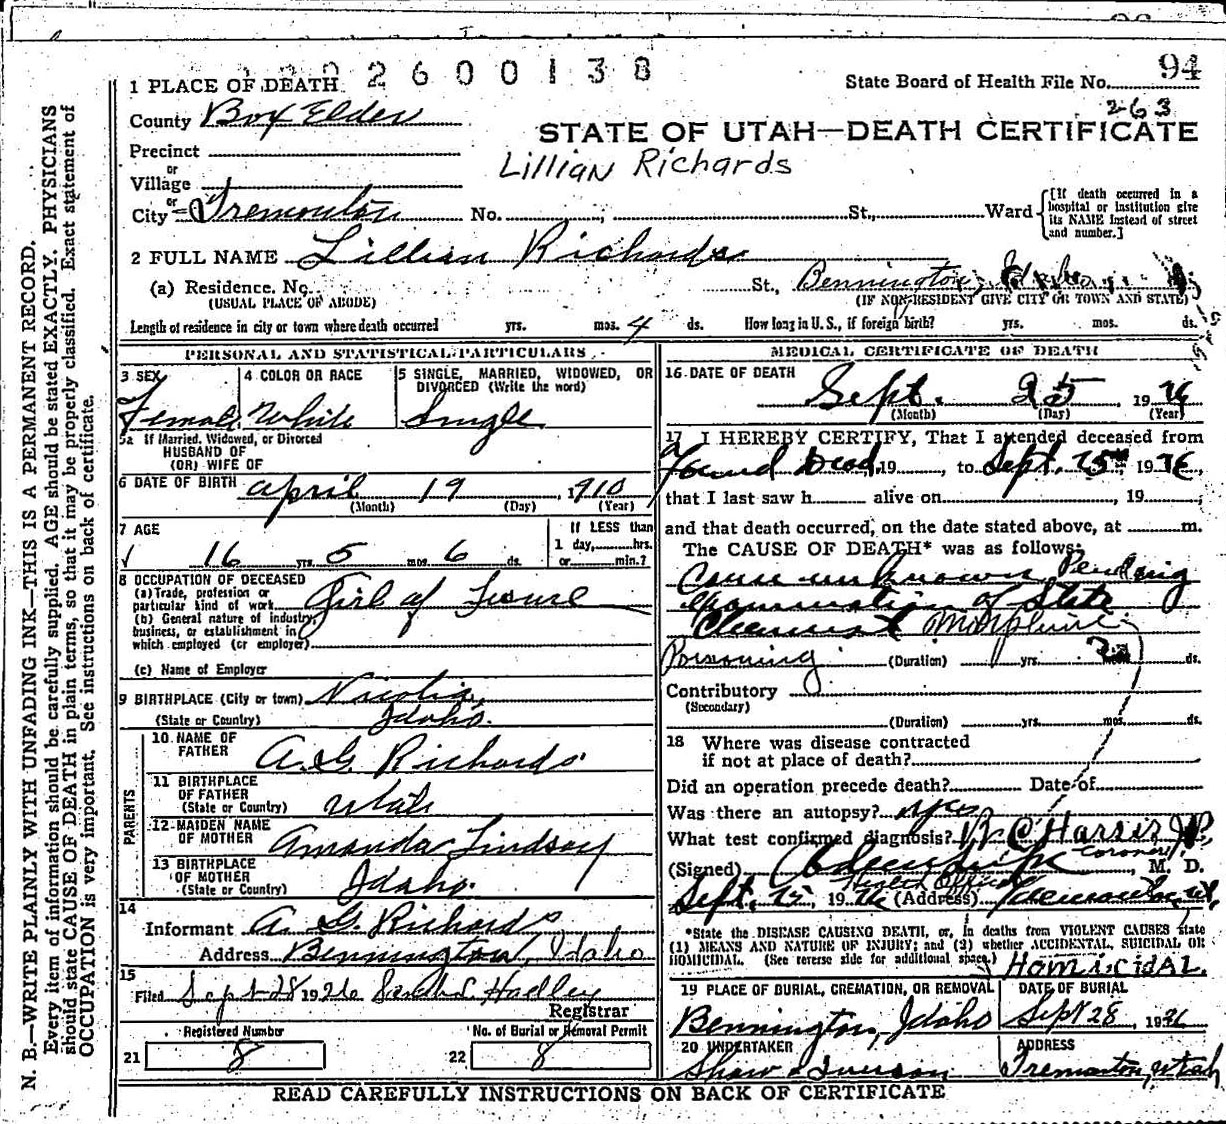 2600138
94
1 PLACE OF DEATH
State Board of Health File No.
263
County Box Elder
STATE OF UTAH—DEATH CERTIFICATE
Precinct
Lillian Richards
or
Village
or
City Tremonton No. ; St., Ward
[If death occurred in a hospital or institution give its NAME instead of street and number.]
2 FULL NAME Lillian Richards
(a) Residence. No. St., Bennington, Idaho
(USUAL PLACE OF ABODE) (IF NON-RESIDENT GIVE CITY OR TOWN AND STATE)
Length of residence in city or town where death occurred yrs. mos. 4 ds. How long in U. S., if foreign birth? yrs. mos. ds.
PERSONAL AND STATISTICAL PARTICULARS
3 SEX
Female
4 COLOR OR RACE
White
5 SINGLE, MARRIED, WIDOWED, OR DIVORCED (Write the word)
Single
5a If Married, Widowed, or Divorced
HUSBAND OF
(OR) WIFE OF
6 DATE OF BIRTH April 19, 1910
(Month) (Day) (Year)
7 AGE
16 yrs. 5 mos. 6 ds.
If LESS than
1 day, hrs.
or min.?
8 OCCUPATION OF DECEASED
(a) Trade, profession or
particular kind of work Girl of Leisure
(b) General nature of industry,
business, or establishment in
which employed (or employer)
(c) Name of Employer
9 BIRTHPLACE (City or town)
(State or Country) Idaho.
PARENTS
10 NAME OF
FATHER A. G. Richards
11 BIRTHPLACE
OF FATHER
(State or Country) Utah
12 MAIDEN NAME
OF MOTHER Amanda Lindsay
13 BIRTHPLACE
OF MOTHER
(State or Country) Idaho.
14
Informant A. G. Richards
Address Bennington, Idaho
15
Filed Sept 28 1926 Sarah S. Hadley
Registrar
Registered Number
No. of Burial or Removal Permit
21 8
22 8
MEDICAL CERTIFICATE OF DEATH
16 DATE OF DEATH
Sept. 25 1926
(Month) (Day) (Year)
17 I HEREBY CERTIFY, That I attended deceased from
Found Dead, 19 , to Sept. 25th 1926,
that I last saw h alive on , 19 ,
and that death occurred, on the date stated above, at m.
The CAUSE OF DEATH* was as follows:
Cause unknown Pending
examination of State
Chemist Morphine
Poisoning (Duration) yrs. ds.
Contributory
(Secondary)
(Duration) yrs. mos. ds.
18 Where was disease contracted
if not at place of death?
Did an operation precede death? Date of
Was there an autopsy? yes
What test confirmed diagnosis? B. C. Harris J.P.
Coroner
(Signed) , M. D.
Health Officer
Sept. 25, 1926 (Address) Tremonton, Ut.
*State the DISEASE CAUSING DEATH, or, in deaths from VIOLENT CAUSES state
(1) MEANS AND NATURE OF INJURY; and (2) whether ACCIDENTAL, SUICIDAL OR
HOMICIDAL. (See reverse side for additional space.)
HOMICIDAL.
19 PLACE OF BURIAL, CREMATION, OR REMOVAL
Bennington, Idaho
DATE OF BURIAL
Sept 28, 1926
20 UNDERTAKER
Shaw & Iverson
ADDRESS
Tremonton, Utah
READ CAREFULLY INSTRUCTIONS ON BACK OF CERTIFICATE
N. B.—WRITE PLAINLY WITH UNFADING INK—THIS IS A PERMANENT RECORD.
Every item of information should be carefully supplied. AGE should be stated EXACTLY. PHYSICIANS
should state CAUSE OF DEATH in plain terms, so that it may be properly classified. Exact statement of
OCCUPATION is very important. See instructions on back of certificate.